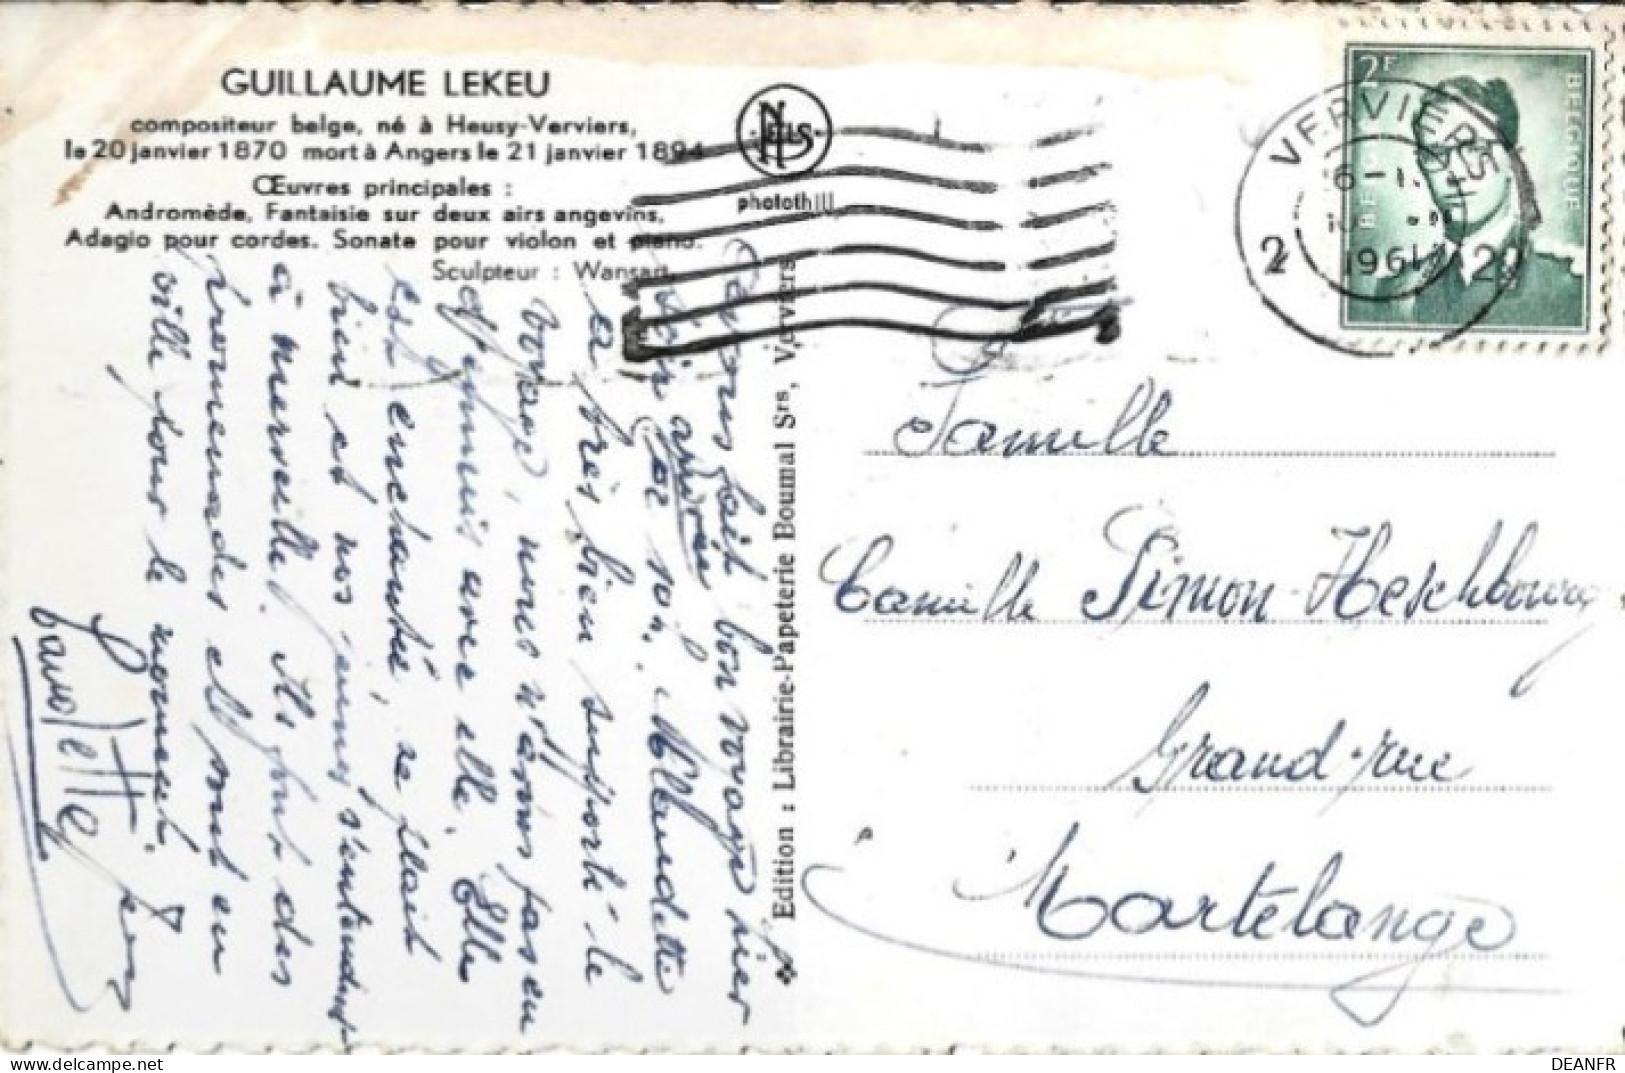 GUILLAUME LEKEU
compositeur belge, né à Heusy-Verviers,
le 20 janvier 1870 mort à Angers le 21 janvier 1894
Œuvres principales :
Andromède, Fantaisie sur deux airs angevins,
Adagio pour cordes. Sonate pour violon et piano.
Sculpteur : Wansart.
NELS
photothill
Edition : Librairie-Papeterie Boumal Srs, Verviers
2F
BELGIQUE
VERVIERS
2 2
1961
fait bon voyage hier
soir
a très bien supporté le
voyage, nous n'avons pas eu
d'ennuis avec elle. Elle
est enchantée, se plait
bien et nos jeunes s'entendent
à merveille. Ils font des
promenades et sont en
ville pour le moment.
Famille
Camille Simon-Heschbourg
Grand-rue
Martelange